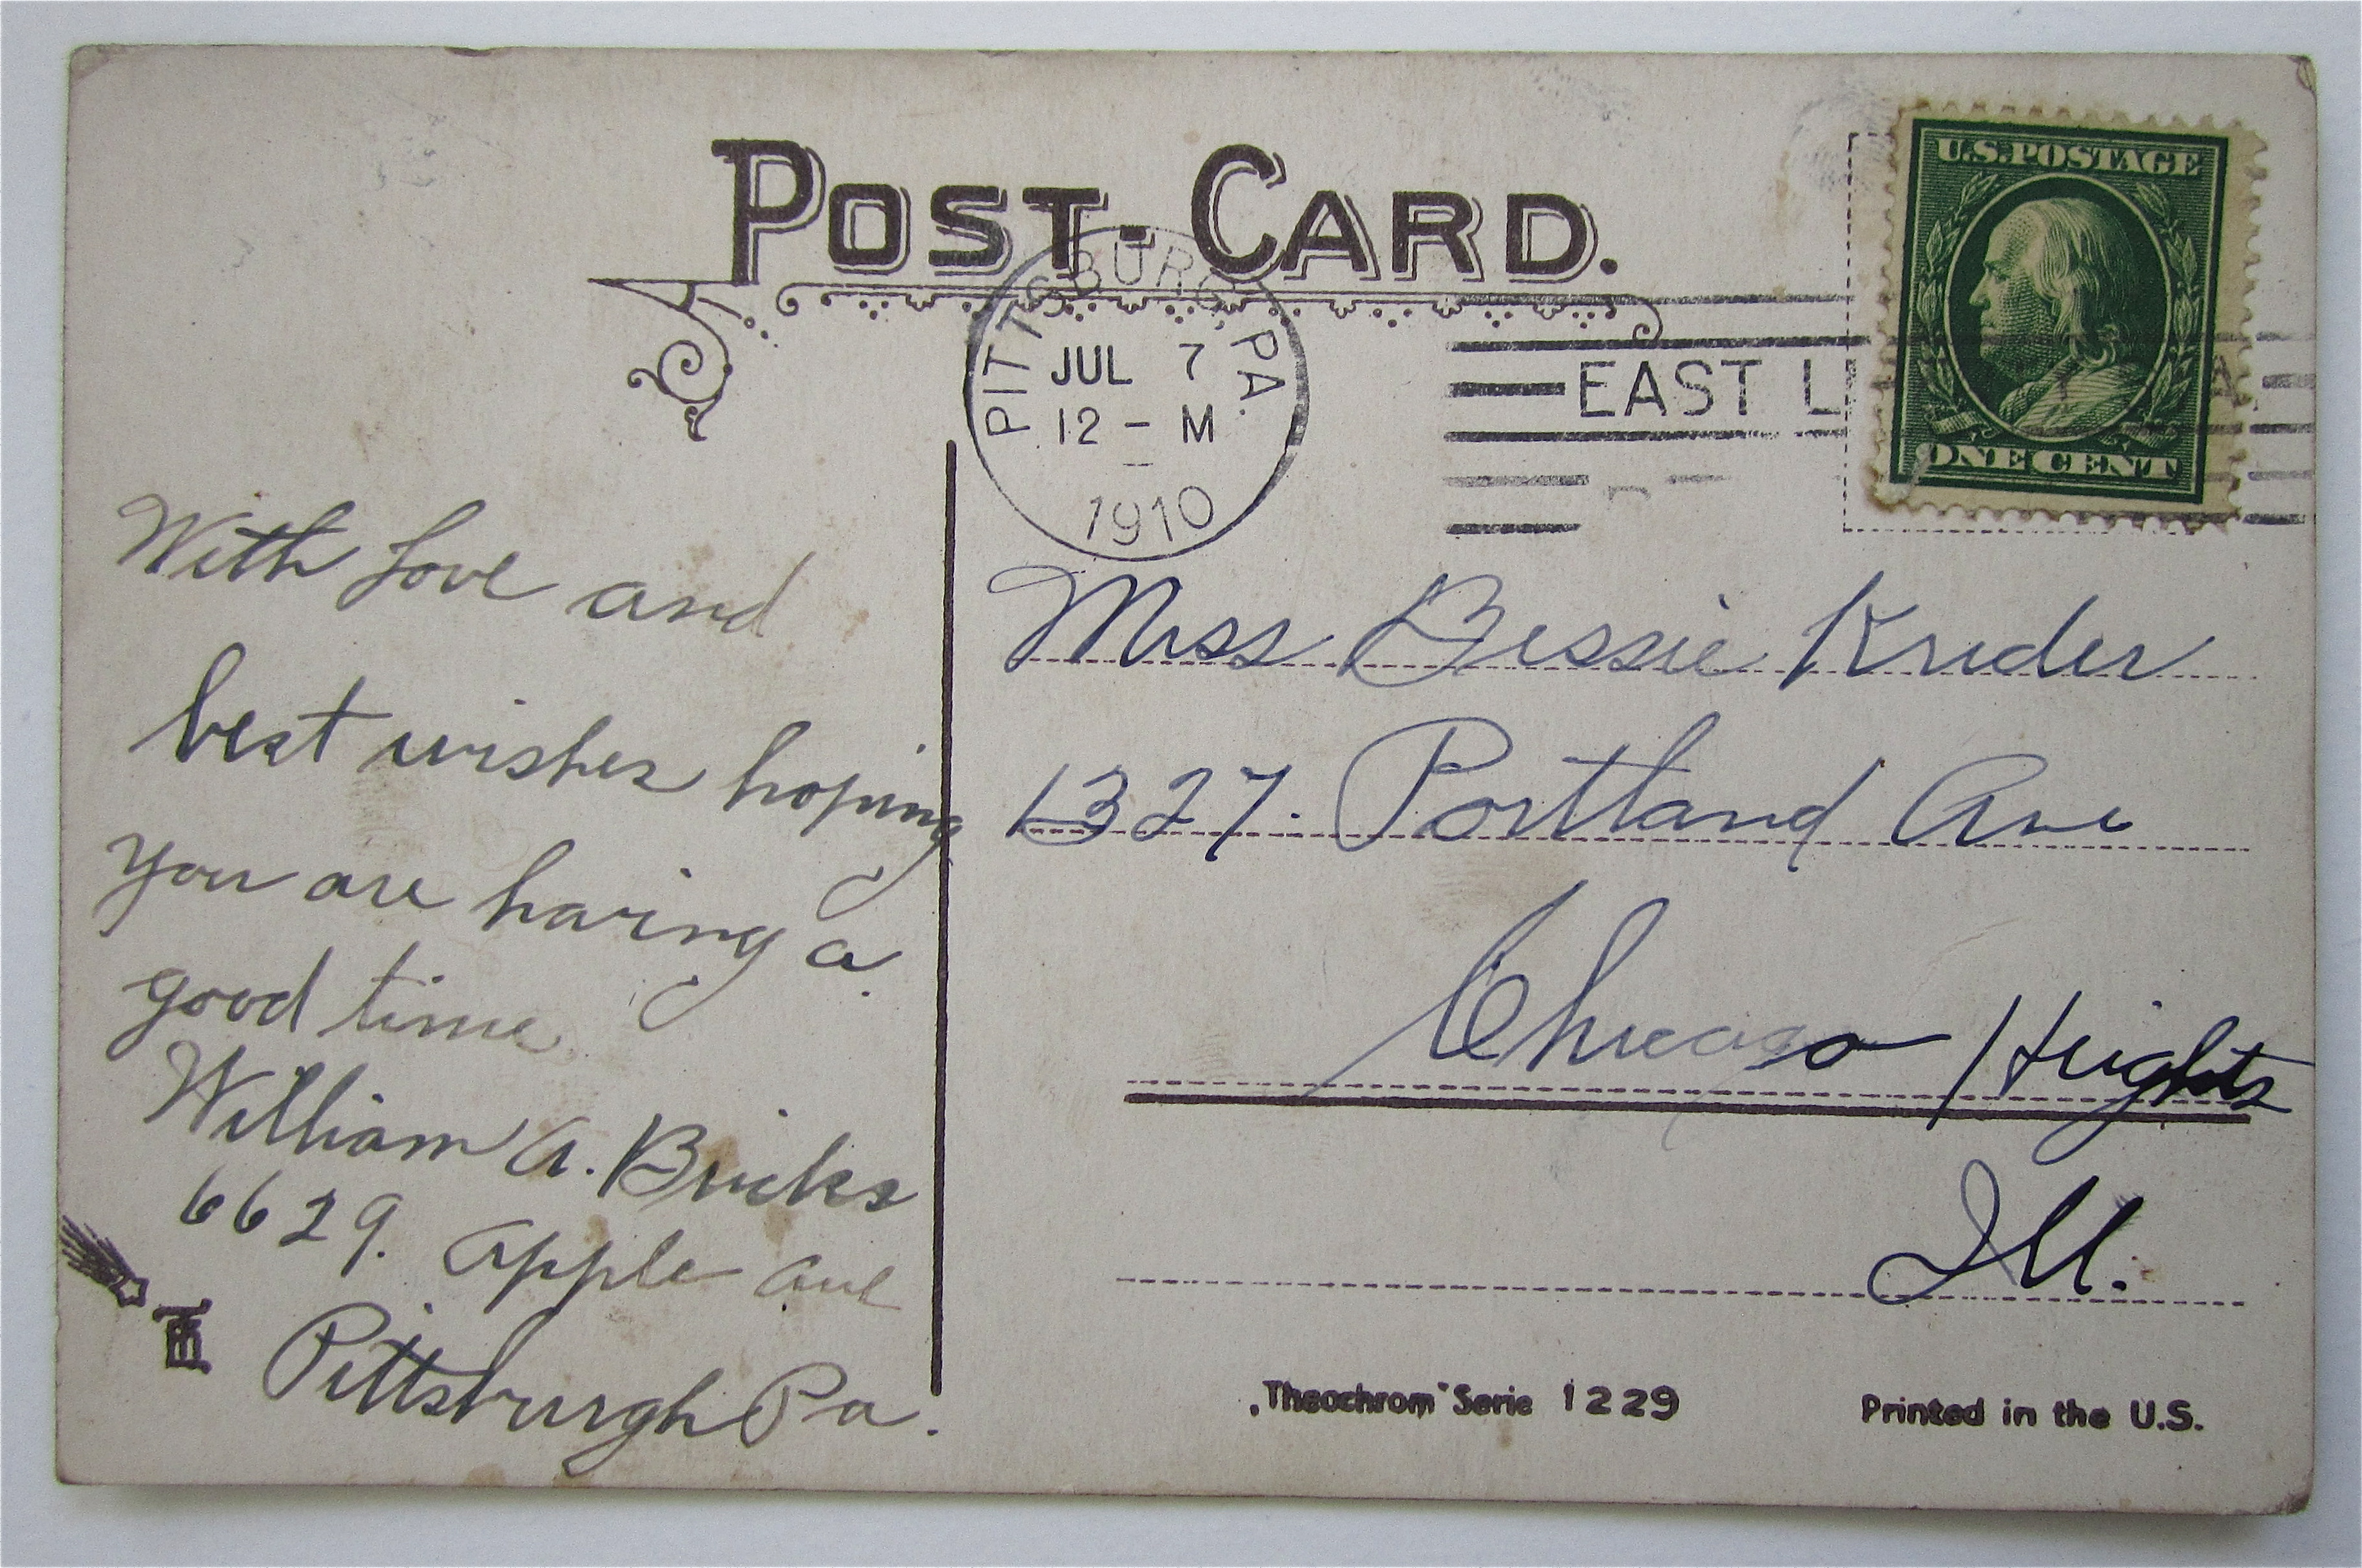 POST-CARD.
U.S. POSTAGE
ONE CENT
PITTSBURG, PA.
JUL 7
12 - M
1910
EAST L
A.
With Love and
best wishes hoping
you are having a
good time
William A. Bricks
6629. Apple Ave
Pittsburgh Pa.
Miss Bessie Kruder
1327. Portland Ave
Chicago Heights
Ill.
„Theochrom" Serie 1229
Printed in the U.S.